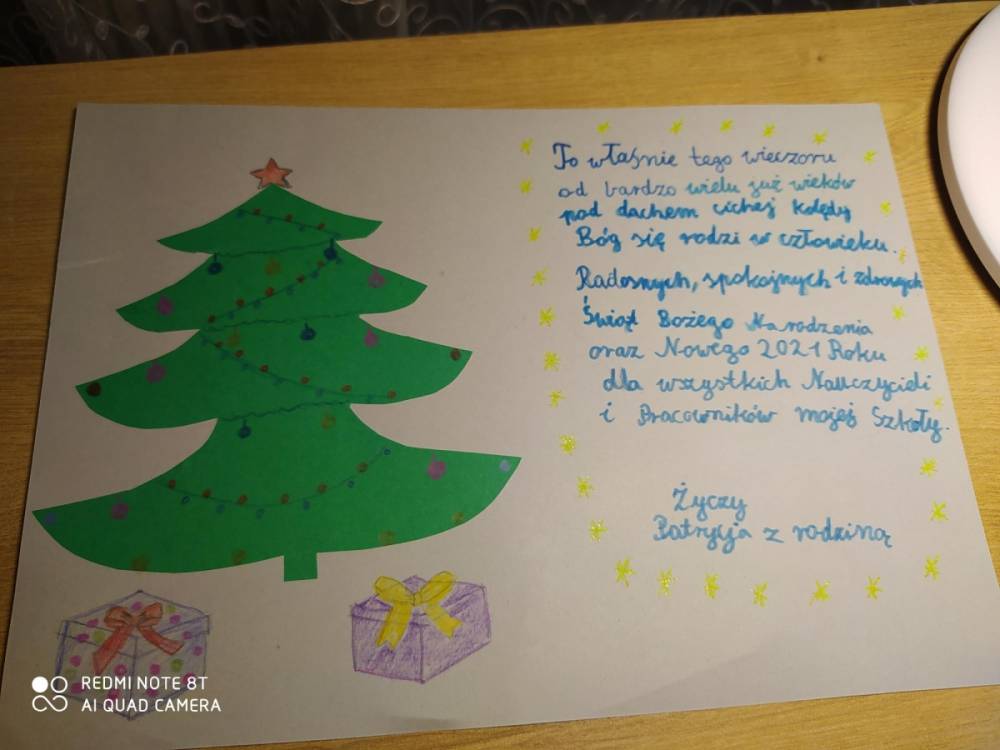 To właśnie tego wieczoru
od bardzo wielu już wieków
pod dachem cichej kolędy
Bóg się rodzi w człowieku.
Radosnych, spokojnych i zdrowych
Świąt Bożego Narodzenia
oraz Nowego 2021 Roku
dla wszystkich Nauczycieli
i Pracowników mojej Szkoły.
Życzy
Patrycja z rodziną
REDMI NOTE 8T
AI QUAD CAMERA